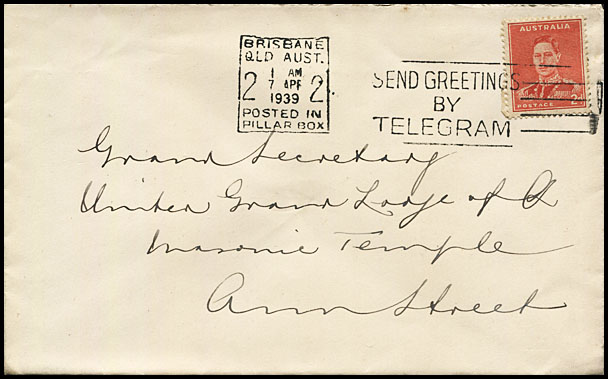 BRISBANE
QLD AUST.
1 AM
2 7 APR 2
1939
POSTED IN
PILLAR BOX
SEND GREETINGS
BY
TELEGRAM
AUSTRALIA
POSTAGE 2d
Grand Secretary
United Grand Lodge of Q
Masonic Temple
Ann Street